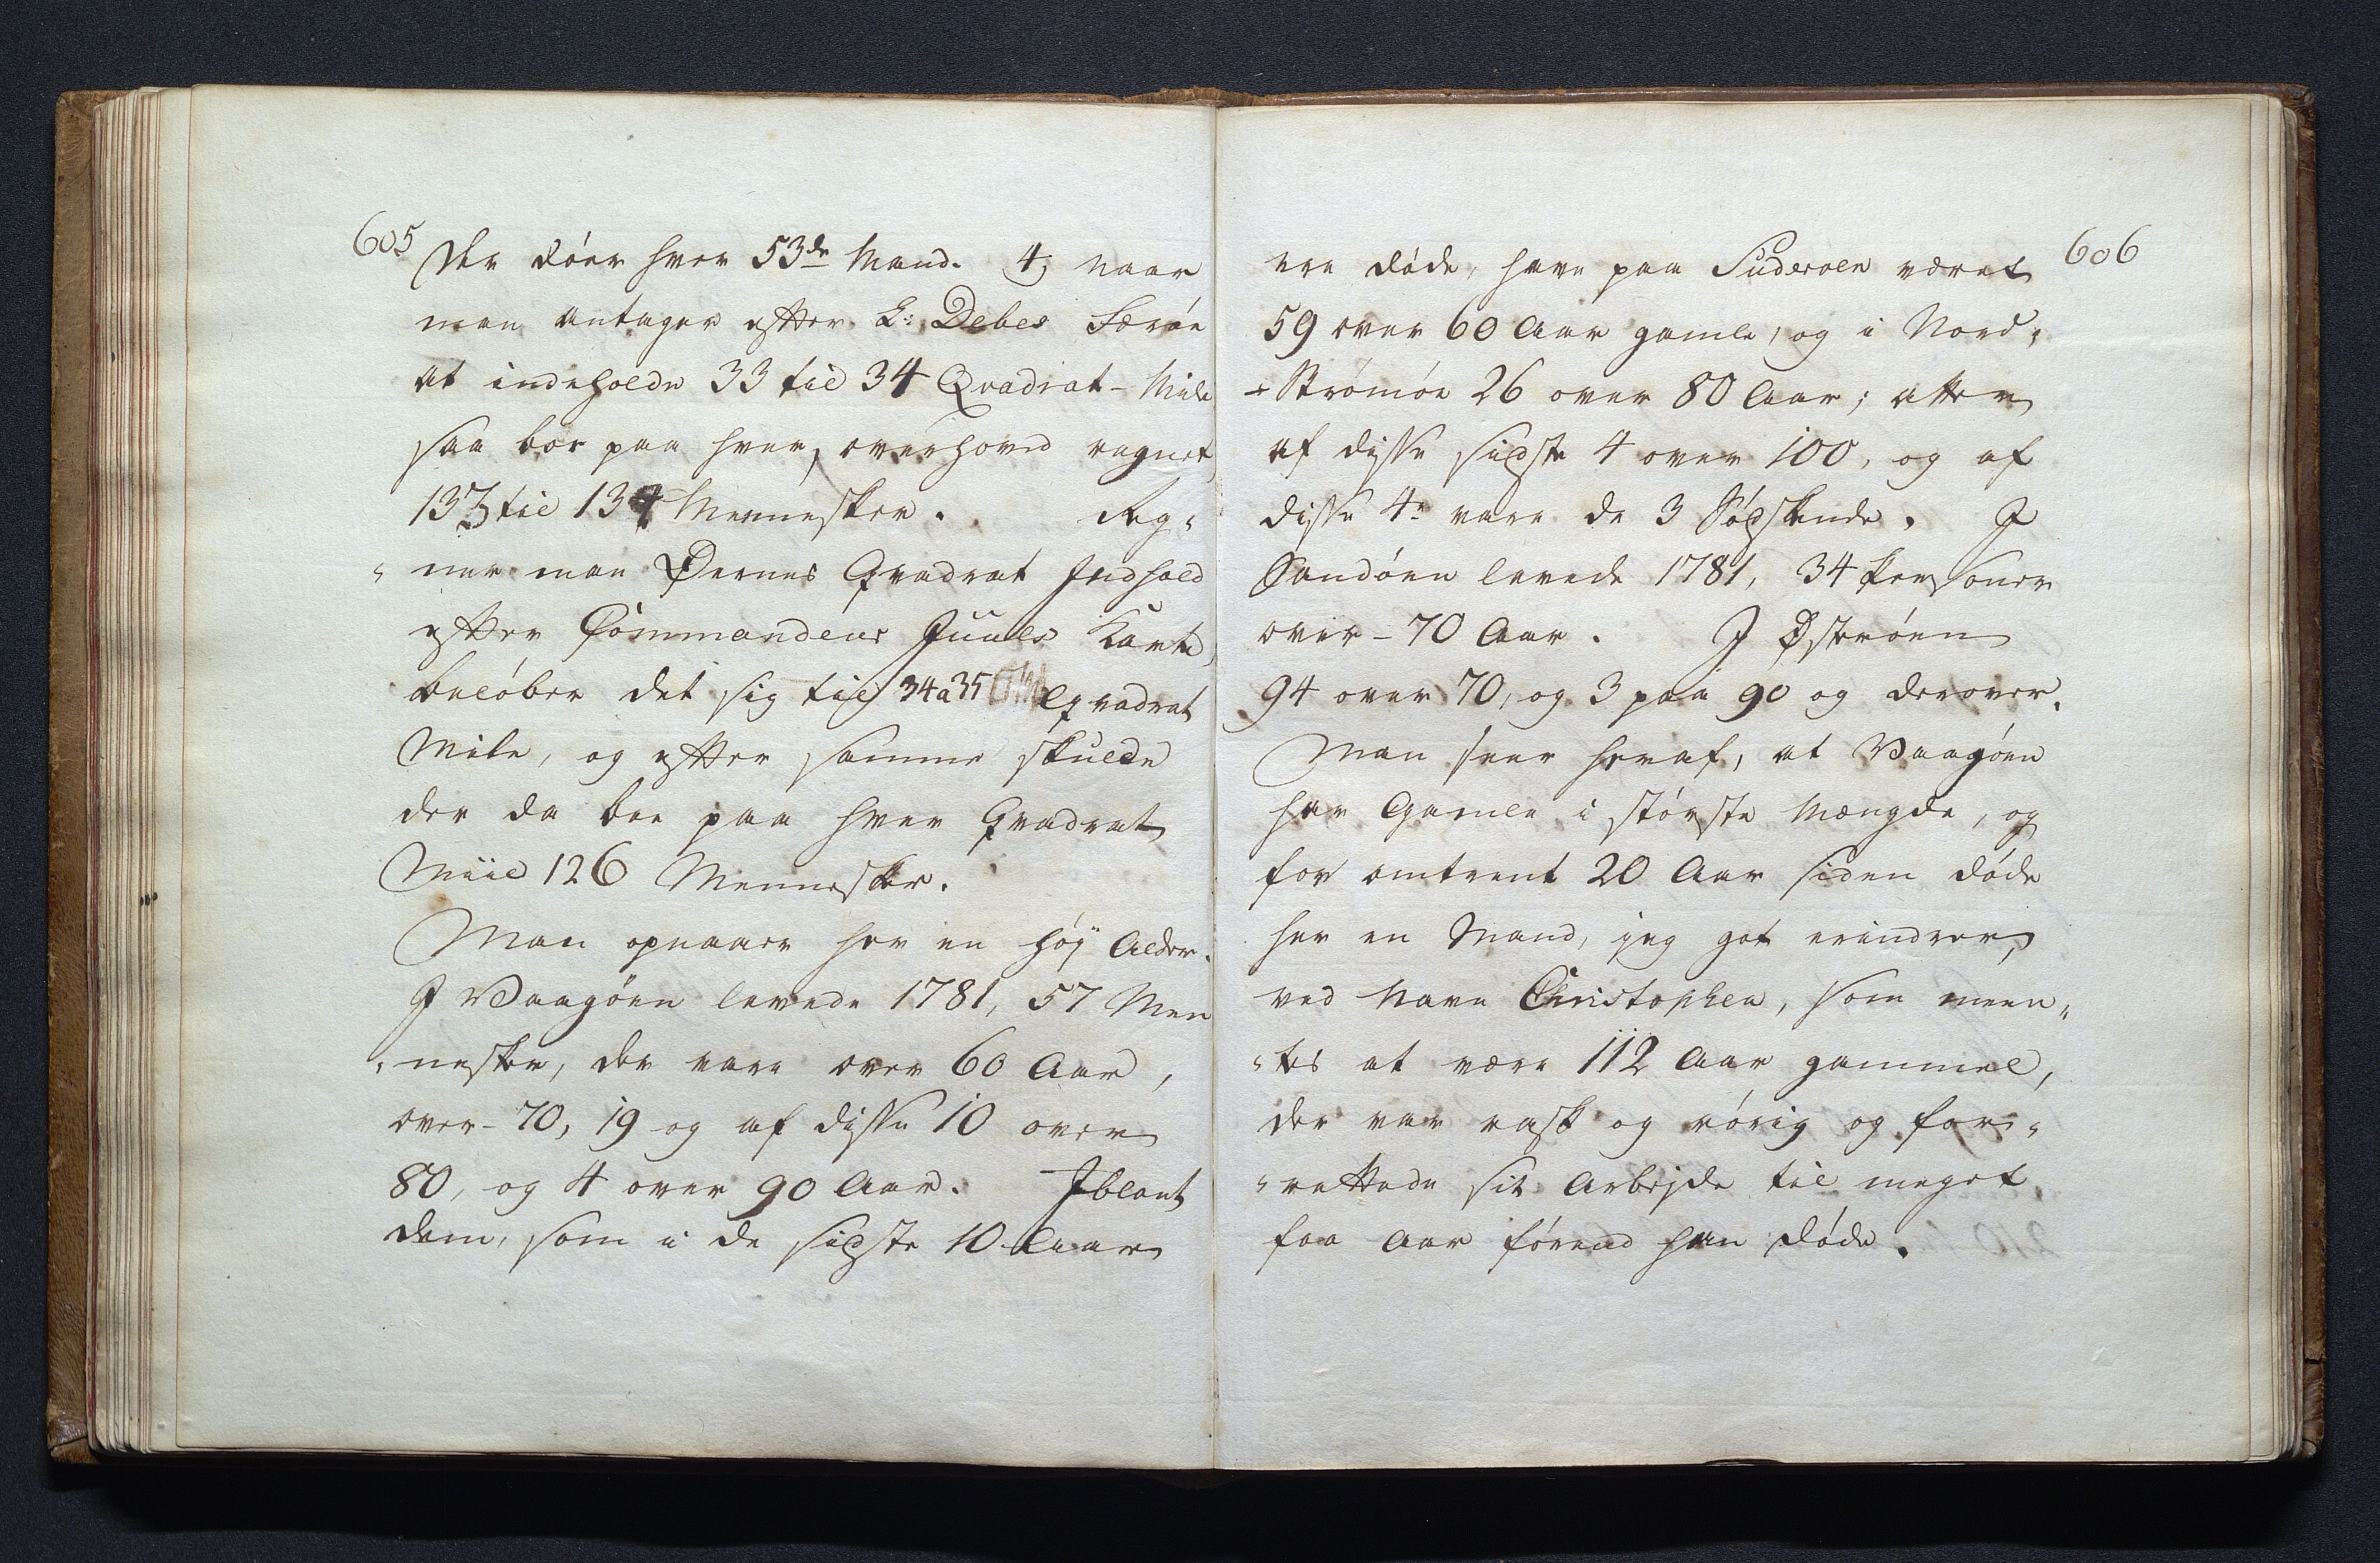 605
Der döer hver 53de Mand. 4, naar
man antager efter L: Debes Færöe
at indeholde 33 til 34 Qvadrat-Mile
saa boe paa hver, overhoved regnet,
133 til 134 Mennesker. Reg-
-ner man Øernes Qvadrat Indhold
efter Commandeur Juuls Karte,
belöber det sig til 34 a 35 Qvadrat
Mile, og efter samme skulde
der da boe paa hver Qvadrat
Miil 126 Mennesker.
Man opnaaer her en höj Alder.
I Waagöen levede 1781, 57 Men
-nesker, der vare over 60 Aar,
over-70, 19 og af disse 10 over
80, og 4 over 90 Aar. Iblant
dem, som i de sidste 10 Aar
606
ere döde, have paa Suderoen været
59 over 60 Aar gamle, og i Nord-
-Strömöe 26 over 80 Aar; atter
af disse sidste 4 over 100, og af
disse 4re vare de 3 Södskende. I
Sandöen levede 1781, 34 Personer
over-70 Aar. I Østeröen
94 over 70, og 3 paa 90 og derover.
Man seer heraf, at Waagöen
har Gamle i störste Mængde, og
for omtrent 20 Aar siden döde
her en Mand, jeg got erindrer,
ved Navn Christopher, som meen-
-tes at være 112 Aar gammel,
der var rask og rörig og for-
-rettede sit Arbejde til meget
faa Aar förend han döde.